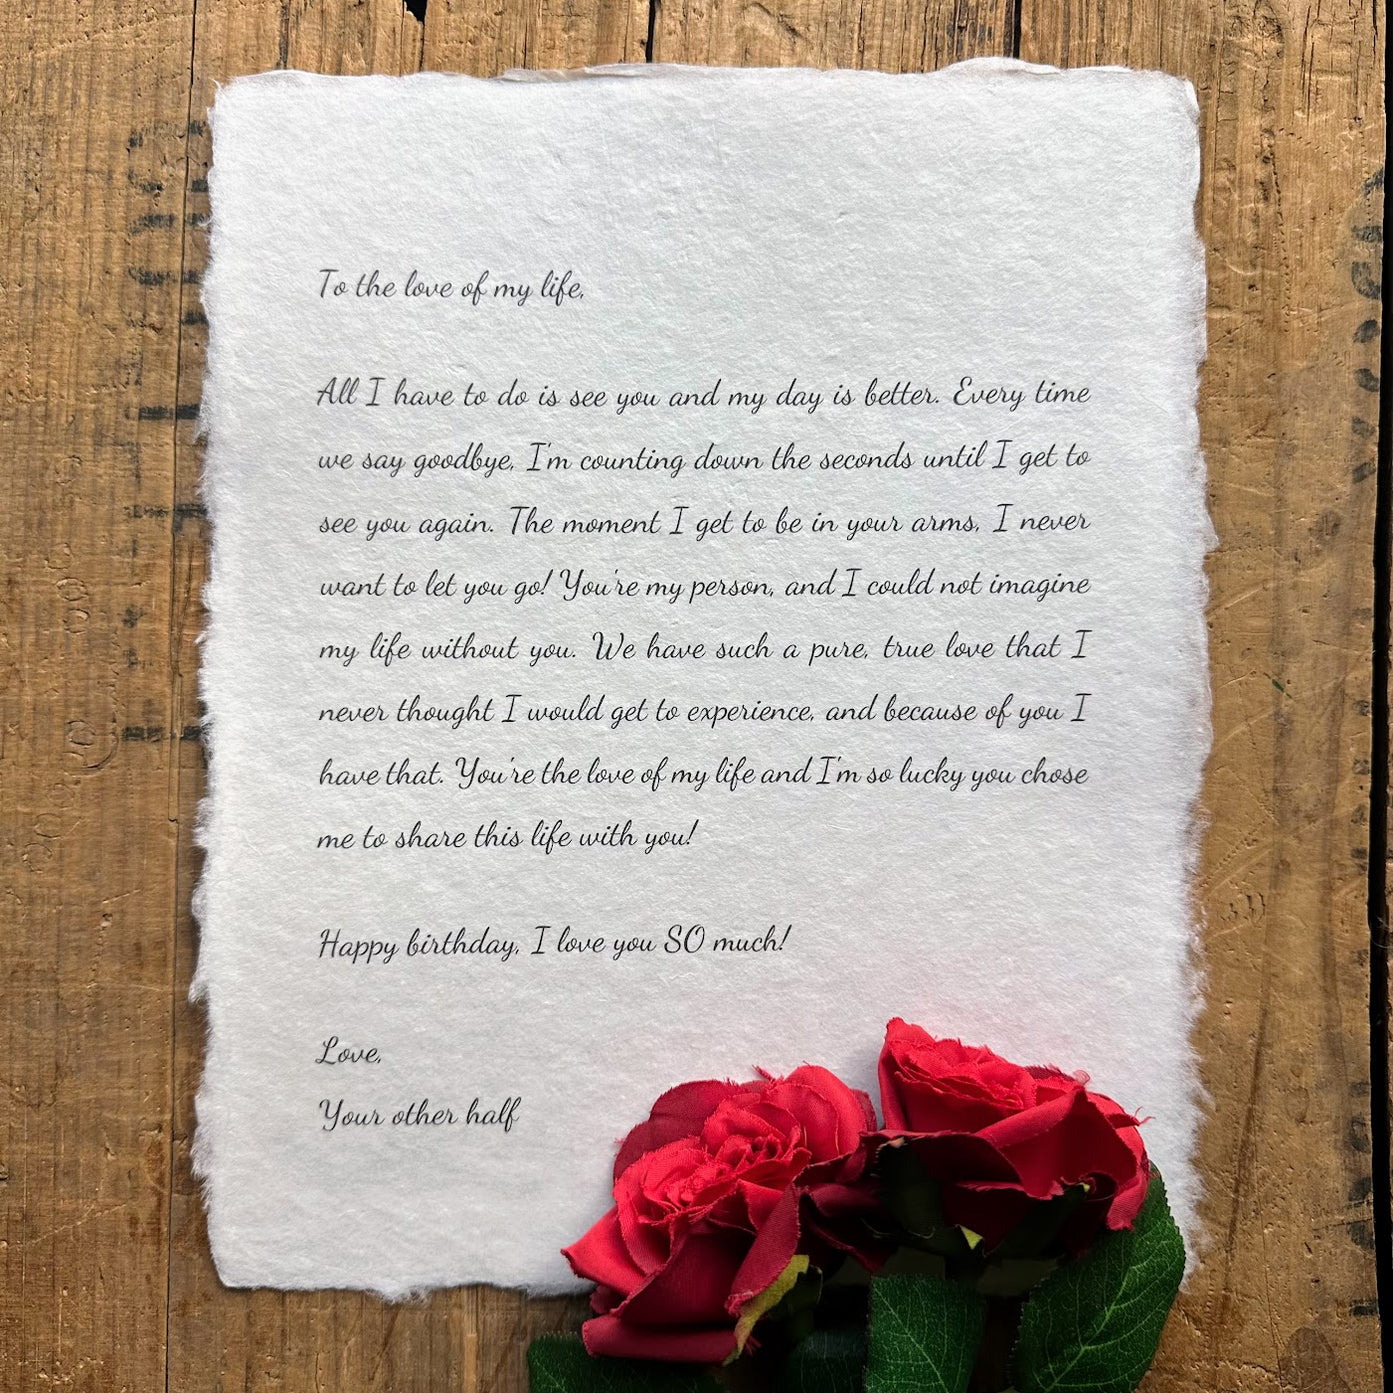 To the love of my life,
All I have to do is see you and my day is better. Every time
we say goodbye, I'm counting down the seconds until I get to
see you again. The moment I get to be in your arms, I never
want to let you go! You're my person, and I could not imagine
my life without you. We have such a pure, true love that I
never thought I would get to experience, and because of you I
have that. You're the love of my life and I'm so lucky you chose
me to share this life with you!
Happy birthday, I love you SO much!
Love,
Your other half